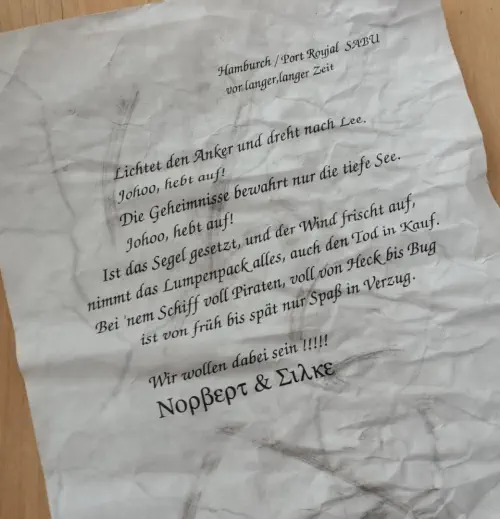 Hamburch / Port Royjal SABU
vor langer,langer Zeit
Lichtet den Anker und dreht nach Lee.
Johoo, hebt auf!
Die Geheimnisse bewahrt nur die tiefe See.
Johoo, hebt auf!
Ist das Segel gesetzt, und der Wind frischt auf,
nimmt das Lumpenpack alles, auch den Tod in Kauf.
Bei 'nem Schiff voll Piraten, voll von Heck bis Bug
ist von früh bis spät nur Spaß in Verzug.
Wir wollen dabei sein !!!!!
Νορβερτ & Σιλκε